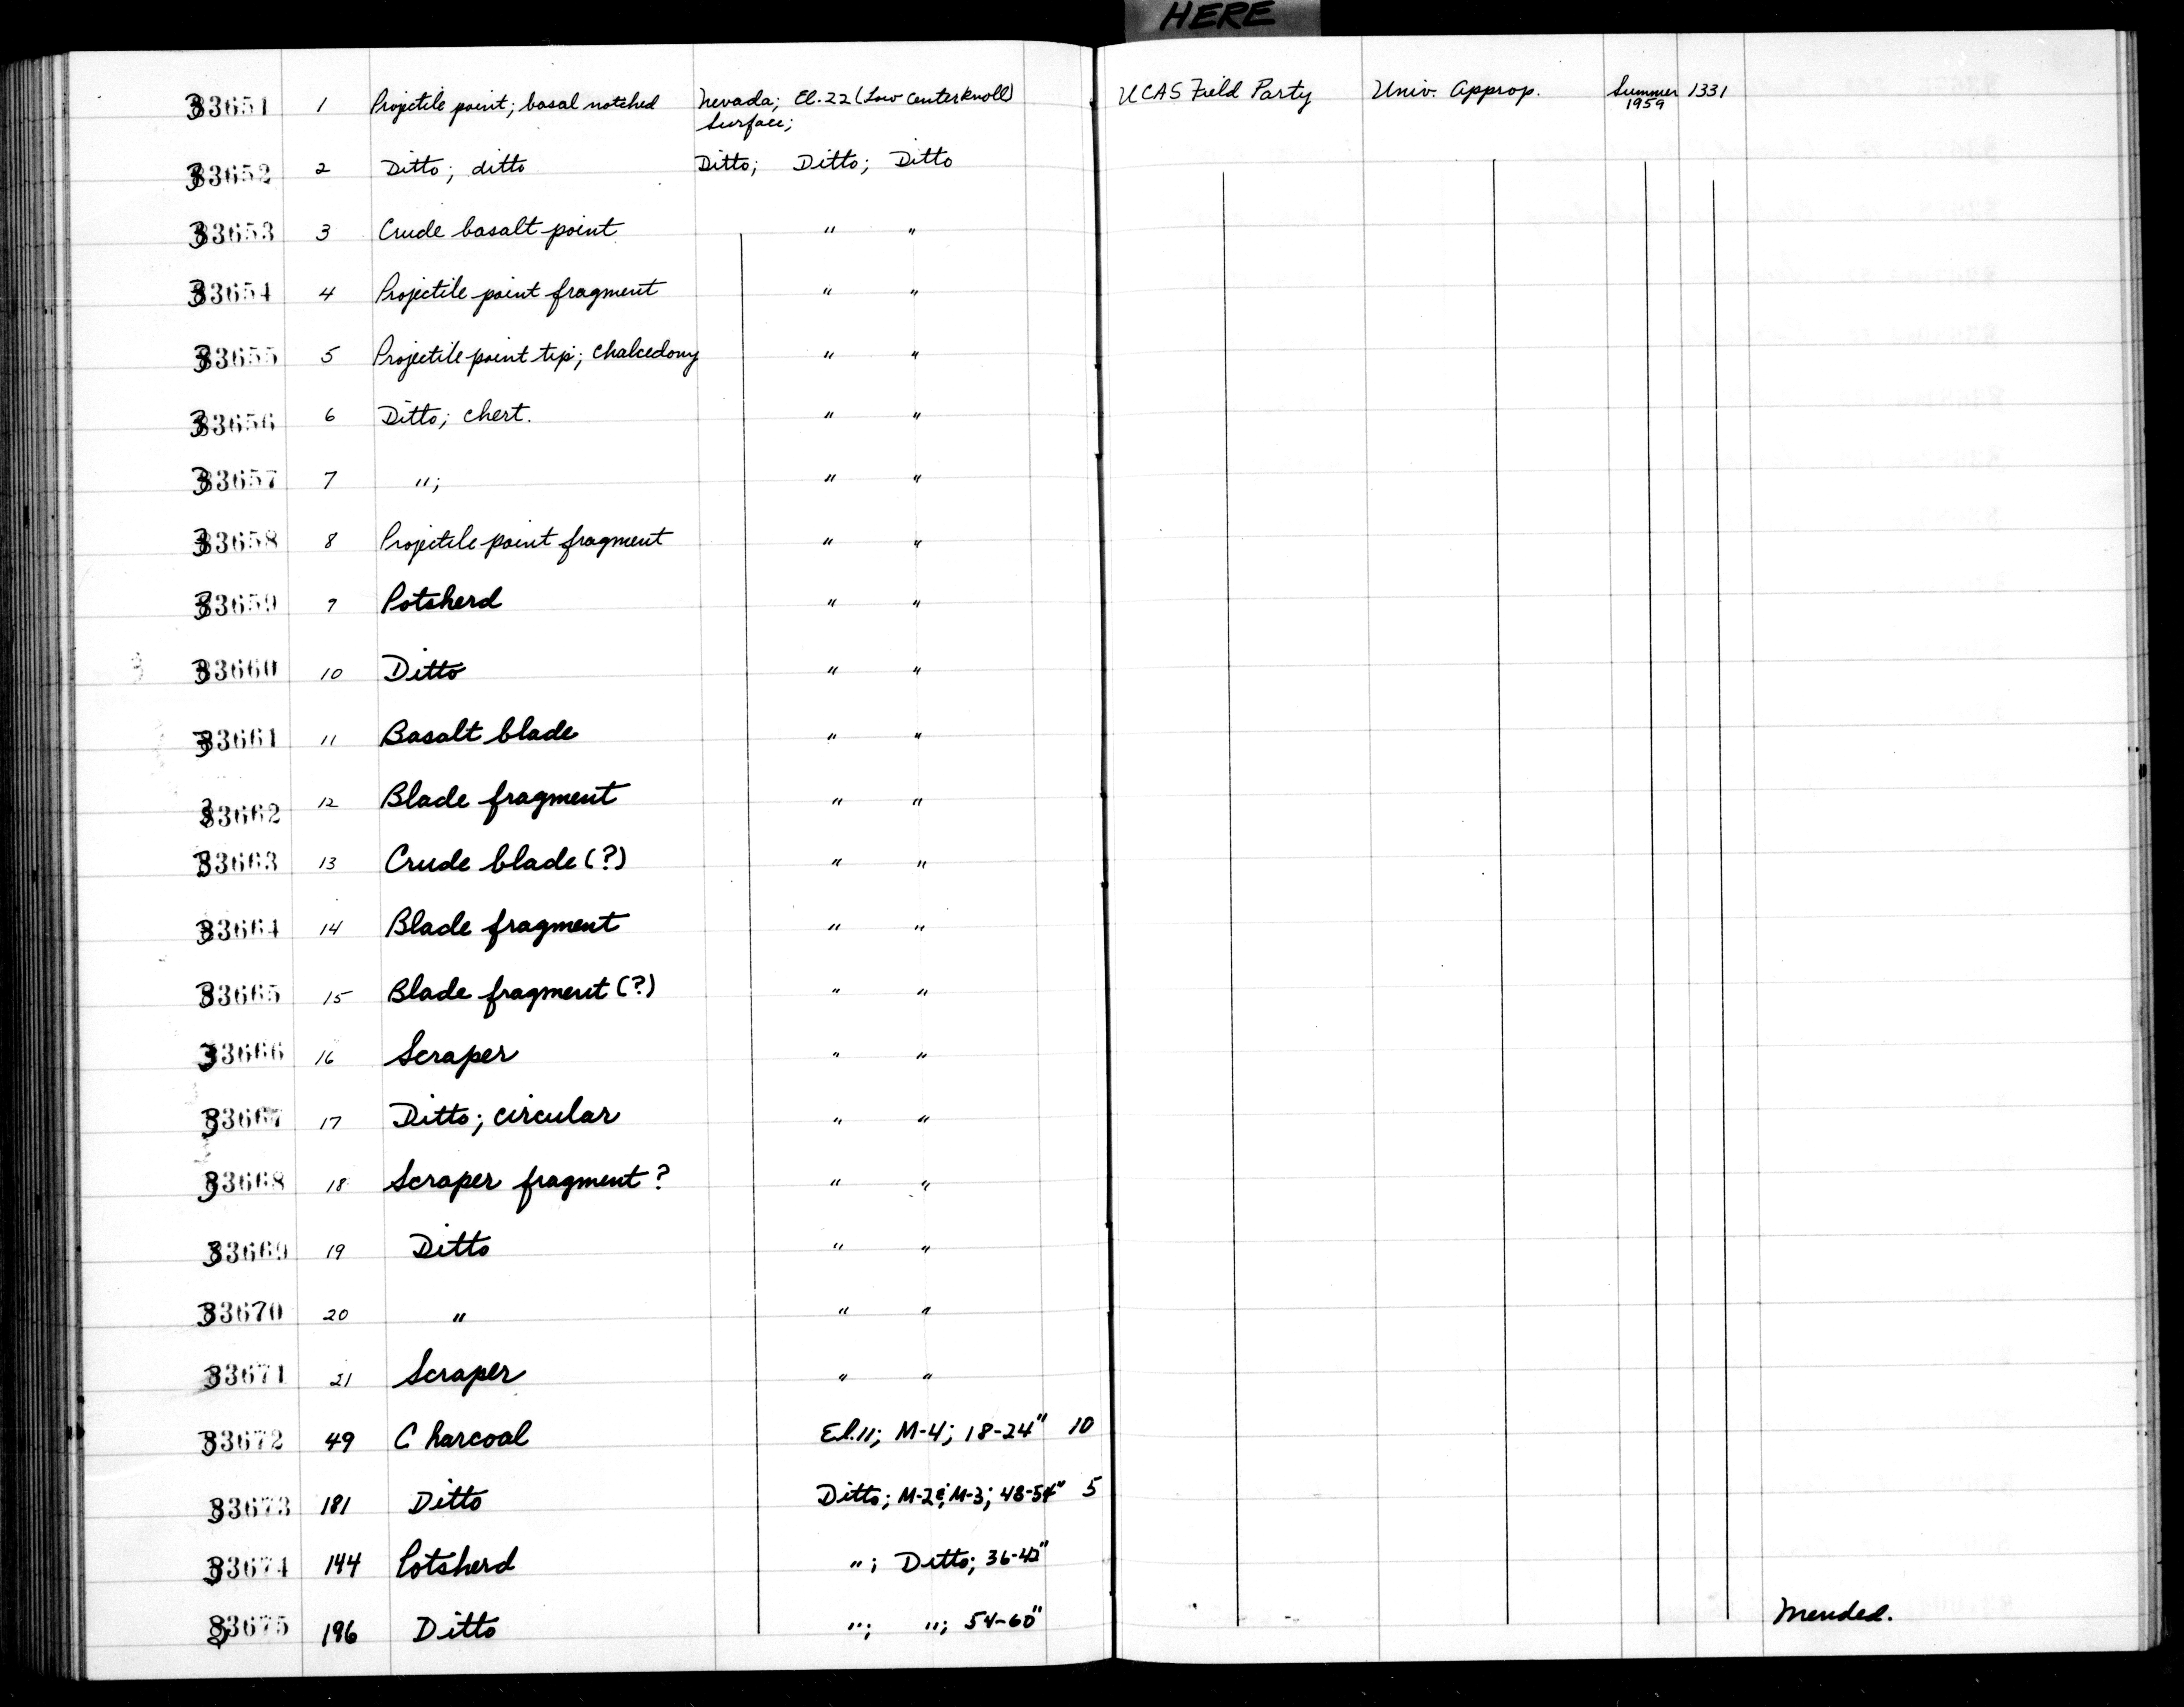 HERE
33651 1 Projectile point; basal notched Nevada; El. 22 (Low Center Knoll) UCAS Field Party Univ. Approp. Summer 1331
Surface; 1959
33652 2 Ditto; ditto Ditto; Ditto; Ditto
33653 3 Crude basalt point " "
33654 4 Projectile point fragment " "
33655 5 Projectile point tip; chalcedony " "
33656 6 Ditto; chert. " "
33657 7 "; " "
33658 8 Projectile point fragment " "
33659 9 Potsherd " "
33660 10 Ditto " "
33661 11 Basalt blade " "
33662 12 Blade fragment " "
33663 13 Crude blade (?) " "
33664 14 Blade fragment " "
33665 15 Blade fragment (?) " "
33666 16 Scraper " "
33667 17 Ditto; circular " "
33668 18 Scraper fragment? " "
33669 19 Ditto " "
33670 20 " " "
33671 21 Scraper " "
33672 49 Charcoal El. 11; M-4; 18-24" 10
33673 181 Ditto Ditto; M-2 & M-3; 48-54" 5
33674 144 Potsherd "; Ditto; 36-42"
33675 196 Ditto "; "; 54-60" Mended.